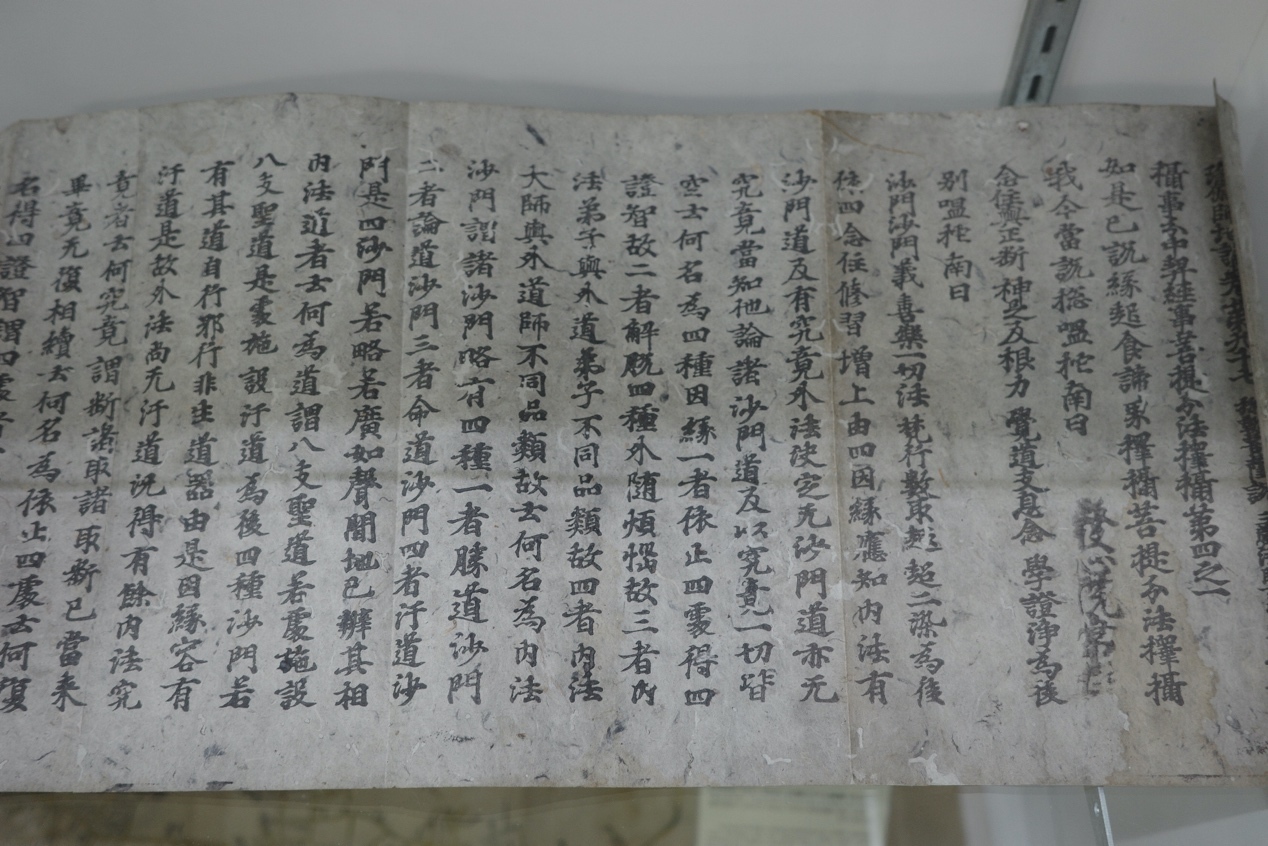 攝事分中契經事菩提分法擇攝第四之一
如是已說緣起食諦界擇攝菩提分法擇攝
我今當說揔嗢柁南曰
念住與正斷神足及根力覺道支息念學證淨為後
別嗢柁南曰
沙門沙門義喜樂一切法梵行數取趣超二染為後
住四念住修習增上由四因緣應知內法有
沙門道及有究竟外法決定无沙門道亦无
究竟當知他論諸沙門道及以究竟一切皆
空云何名為四種因緣一者依止四處得四
證智故二者解脫四種外随煩惱故三者內
法弟子與外道弟子不同品類故四者內法
大師與外道師不同品類故云何名為內法
沙門謂諸沙門略有四種一者勝道沙門
二者論道沙門三者命道沙門四者汙道沙
門是四沙門若略若廣如聲聞地已辯其相
內法近者云何為道謂八支聖道若處施設
八支聖道是處施設汙道為後四種沙門若
有其道自行邪行非生道器由是因緣容有
汙道是故外法尚无汙道況得有餘內法究
竟者云何究竟謂斷諸取諸取斷已當来
畢竟无復相續云何名為依止四處云何復
名得四證智謂四處者